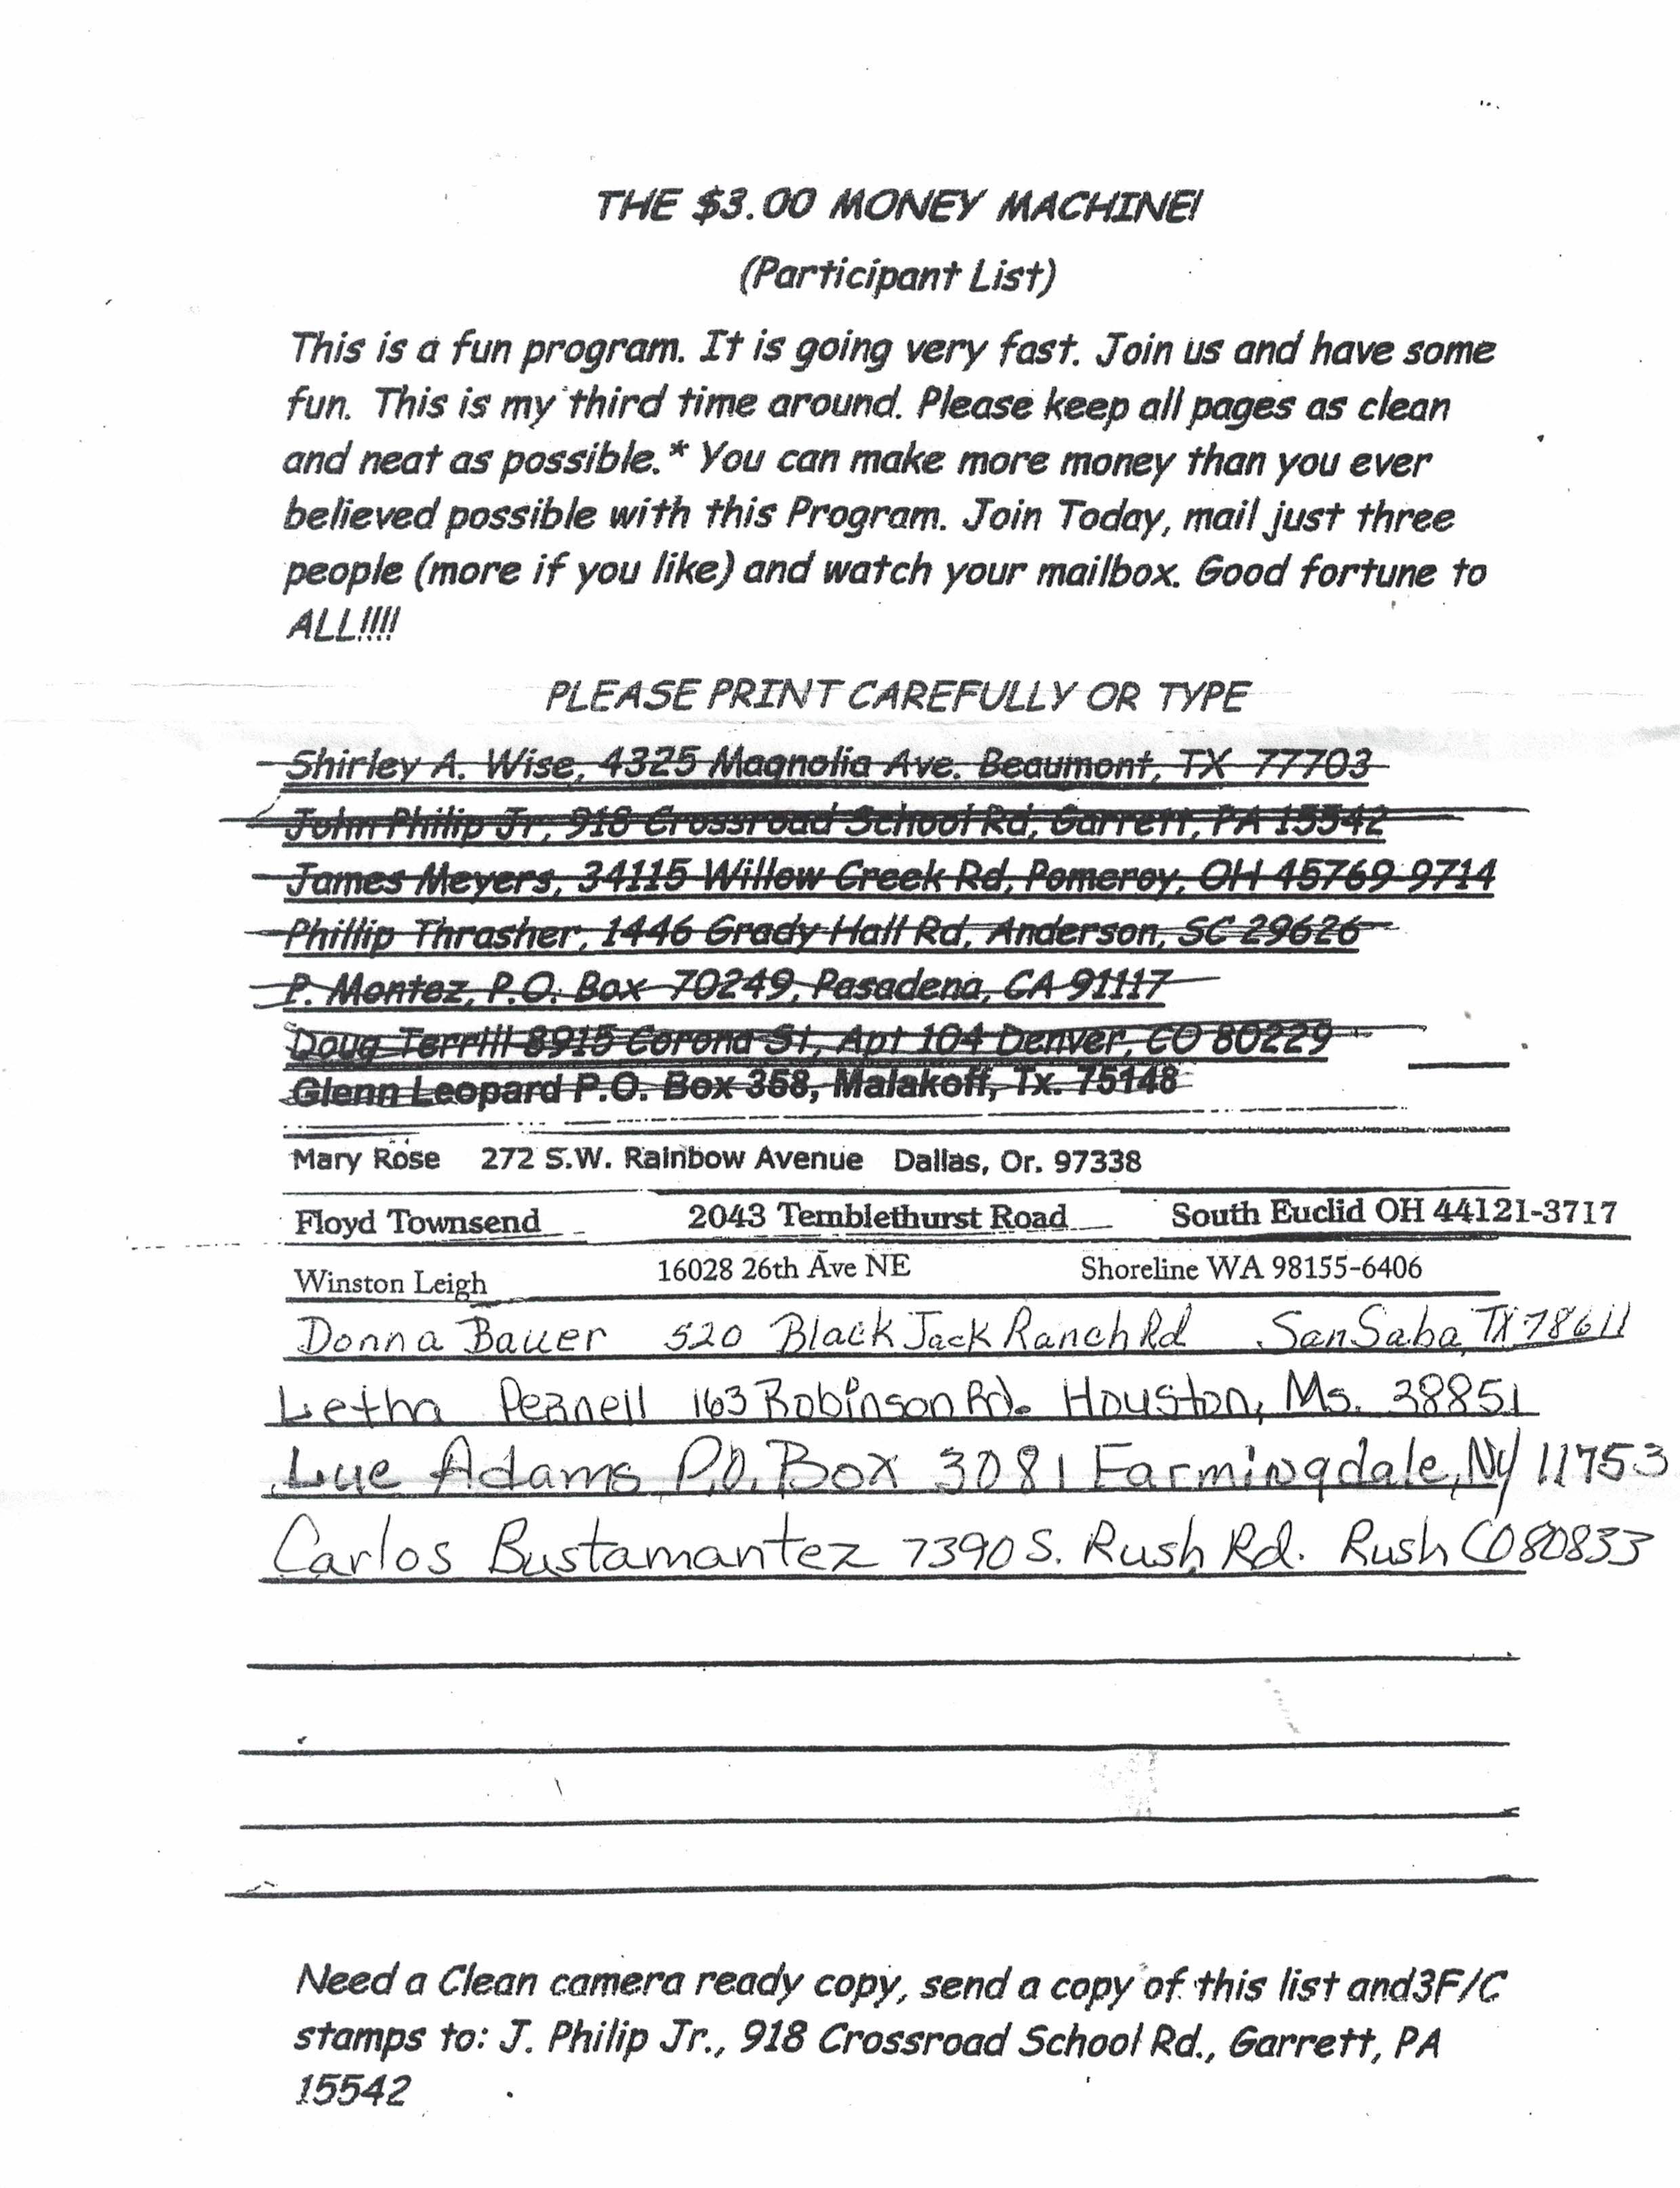 THE $3.00 MONEY MACHINE!
(Participant List)
This is a fun program. It is going very fast. Join us and have some
fun. This is my third time around. Please keep all pages as clean
and neat as possible.* You can make more money than you ever
believed possible with this Program. Join Today, mail just three
people (more if you like) and watch your mailbox. Good fortune to
ALL!!!!
PLEASE PRINT CAREFULLY OR TYPE
Shirley A. Wise, 4325 Magnolia Ave. Beaumont, TX 77703
John Philip Jr, 918 Crossroad School Rd, Garrett, PA 15542
James Meyers, 34115 Willow Creek Rd, Pomeroy, OH 45769-9714
Phillip Thrasher, 1446 Grady Hall Rd, Anderson, SC 29626
P. Montez, P.O. Box 70249, Pasadena, CA 91117
Doug Terrill 8915 Corona St, Apt 104 Denver, CO 80229
Glenn Leopard P.O. Box 368, Malakoff, Tx. 75148
Mary Rose 272 S.W. Rainbow Avenue Dallas, Or. 97338
Floyd Townsend 2043 Temblethurst Road South Euclid OH 44121-3717
Winston Leigh 16028 26th Ave NE Shoreline WA 98155-6406
Donna Bauer 520 Black Jack Ranch Rd San Saba, TX 78611
Letha Pernell 163 Robinson Rd. Houston, Ms. 38851
Lue Adams P.O. Box 3081 Farmingdale, Ny 11753
Carlos Bustamantez 7390 S. Rush Rd. Rush CO 80833
Need a Clean camera ready copy, send a copy of this list and3F/C
stamps to: J. Philip Jr., 918 Crossroad School Rd., Garrett, PA
15542